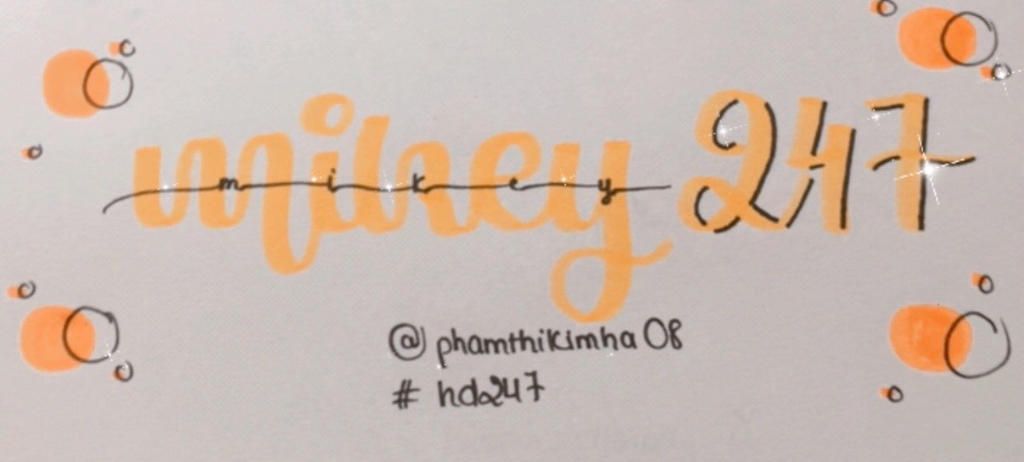 mikey 247
mikey
@phamthikimha08
# hd247